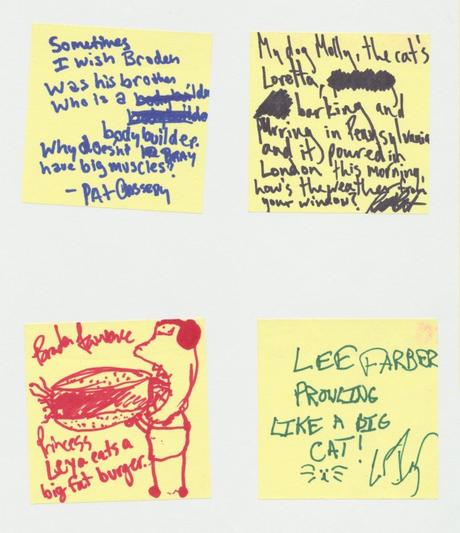 Sometimes
I wish Braden
was his brother
who is a
bodybuilder.
Why doesn't
have big muscles?
- PAT
My dog Molly, the cat's
Loretta,
barking and
purring in Pennsylvania
and it poured in
London this morning,
how's the weather from
your window?
Braden
Princess
Leiya eats a
big fat burger.
LEE FARBER
PROWLING
LIKE A BIG
CAT!